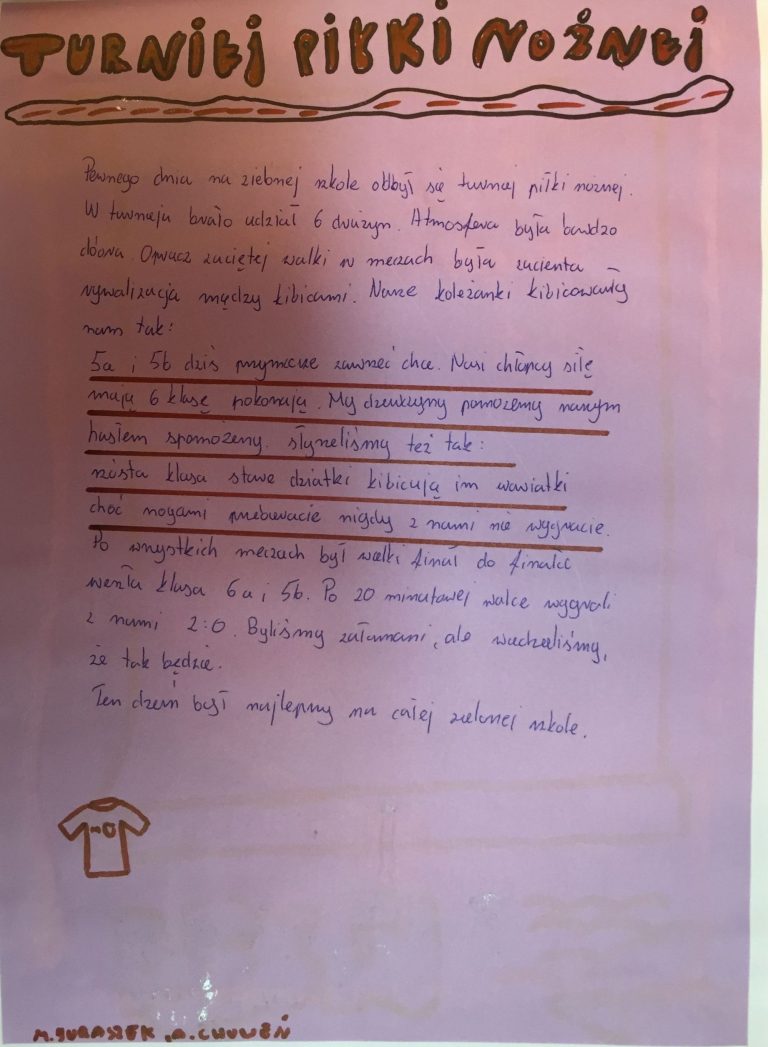 TURNIEJ PIŁKI NOŻNEJ
Pewnego dnia na zielonej szkole odbył się turniej piłki nożnej.
W turnieju brało udział 6 drużyn. Atmosfera była bardzo
dobra. Oprucz zaciętej walki w meczach była zacienta
rywalizacja mędzy kibicami. Nasze koleżanki kibicowały
nam tak:
5a i 5b dziś przymieże zawrzeć chce. Nasi chłopcy siłę
mają 6 klasę pokonają. My dziewczyny pomożemy naszym
hasłem spomożemy. słyszeliśmy też tak:
szósta klasa stare dziatki kibicują im wariatki
choć nogami przebieracie nigdy z nami nie wygracie.
Po wszystkich meczach był wielki finał do finału
weszła klasa 6a i 5b. Po 20 minutowej walce wygrali
z nami 2:0. Byliśmy załamani, ale wiedzieliśmy,
że tak będzie.
Ten dzień był najlepszy na całej zielonej szkole.
M. JURASZEK, A. CHUWEŃ